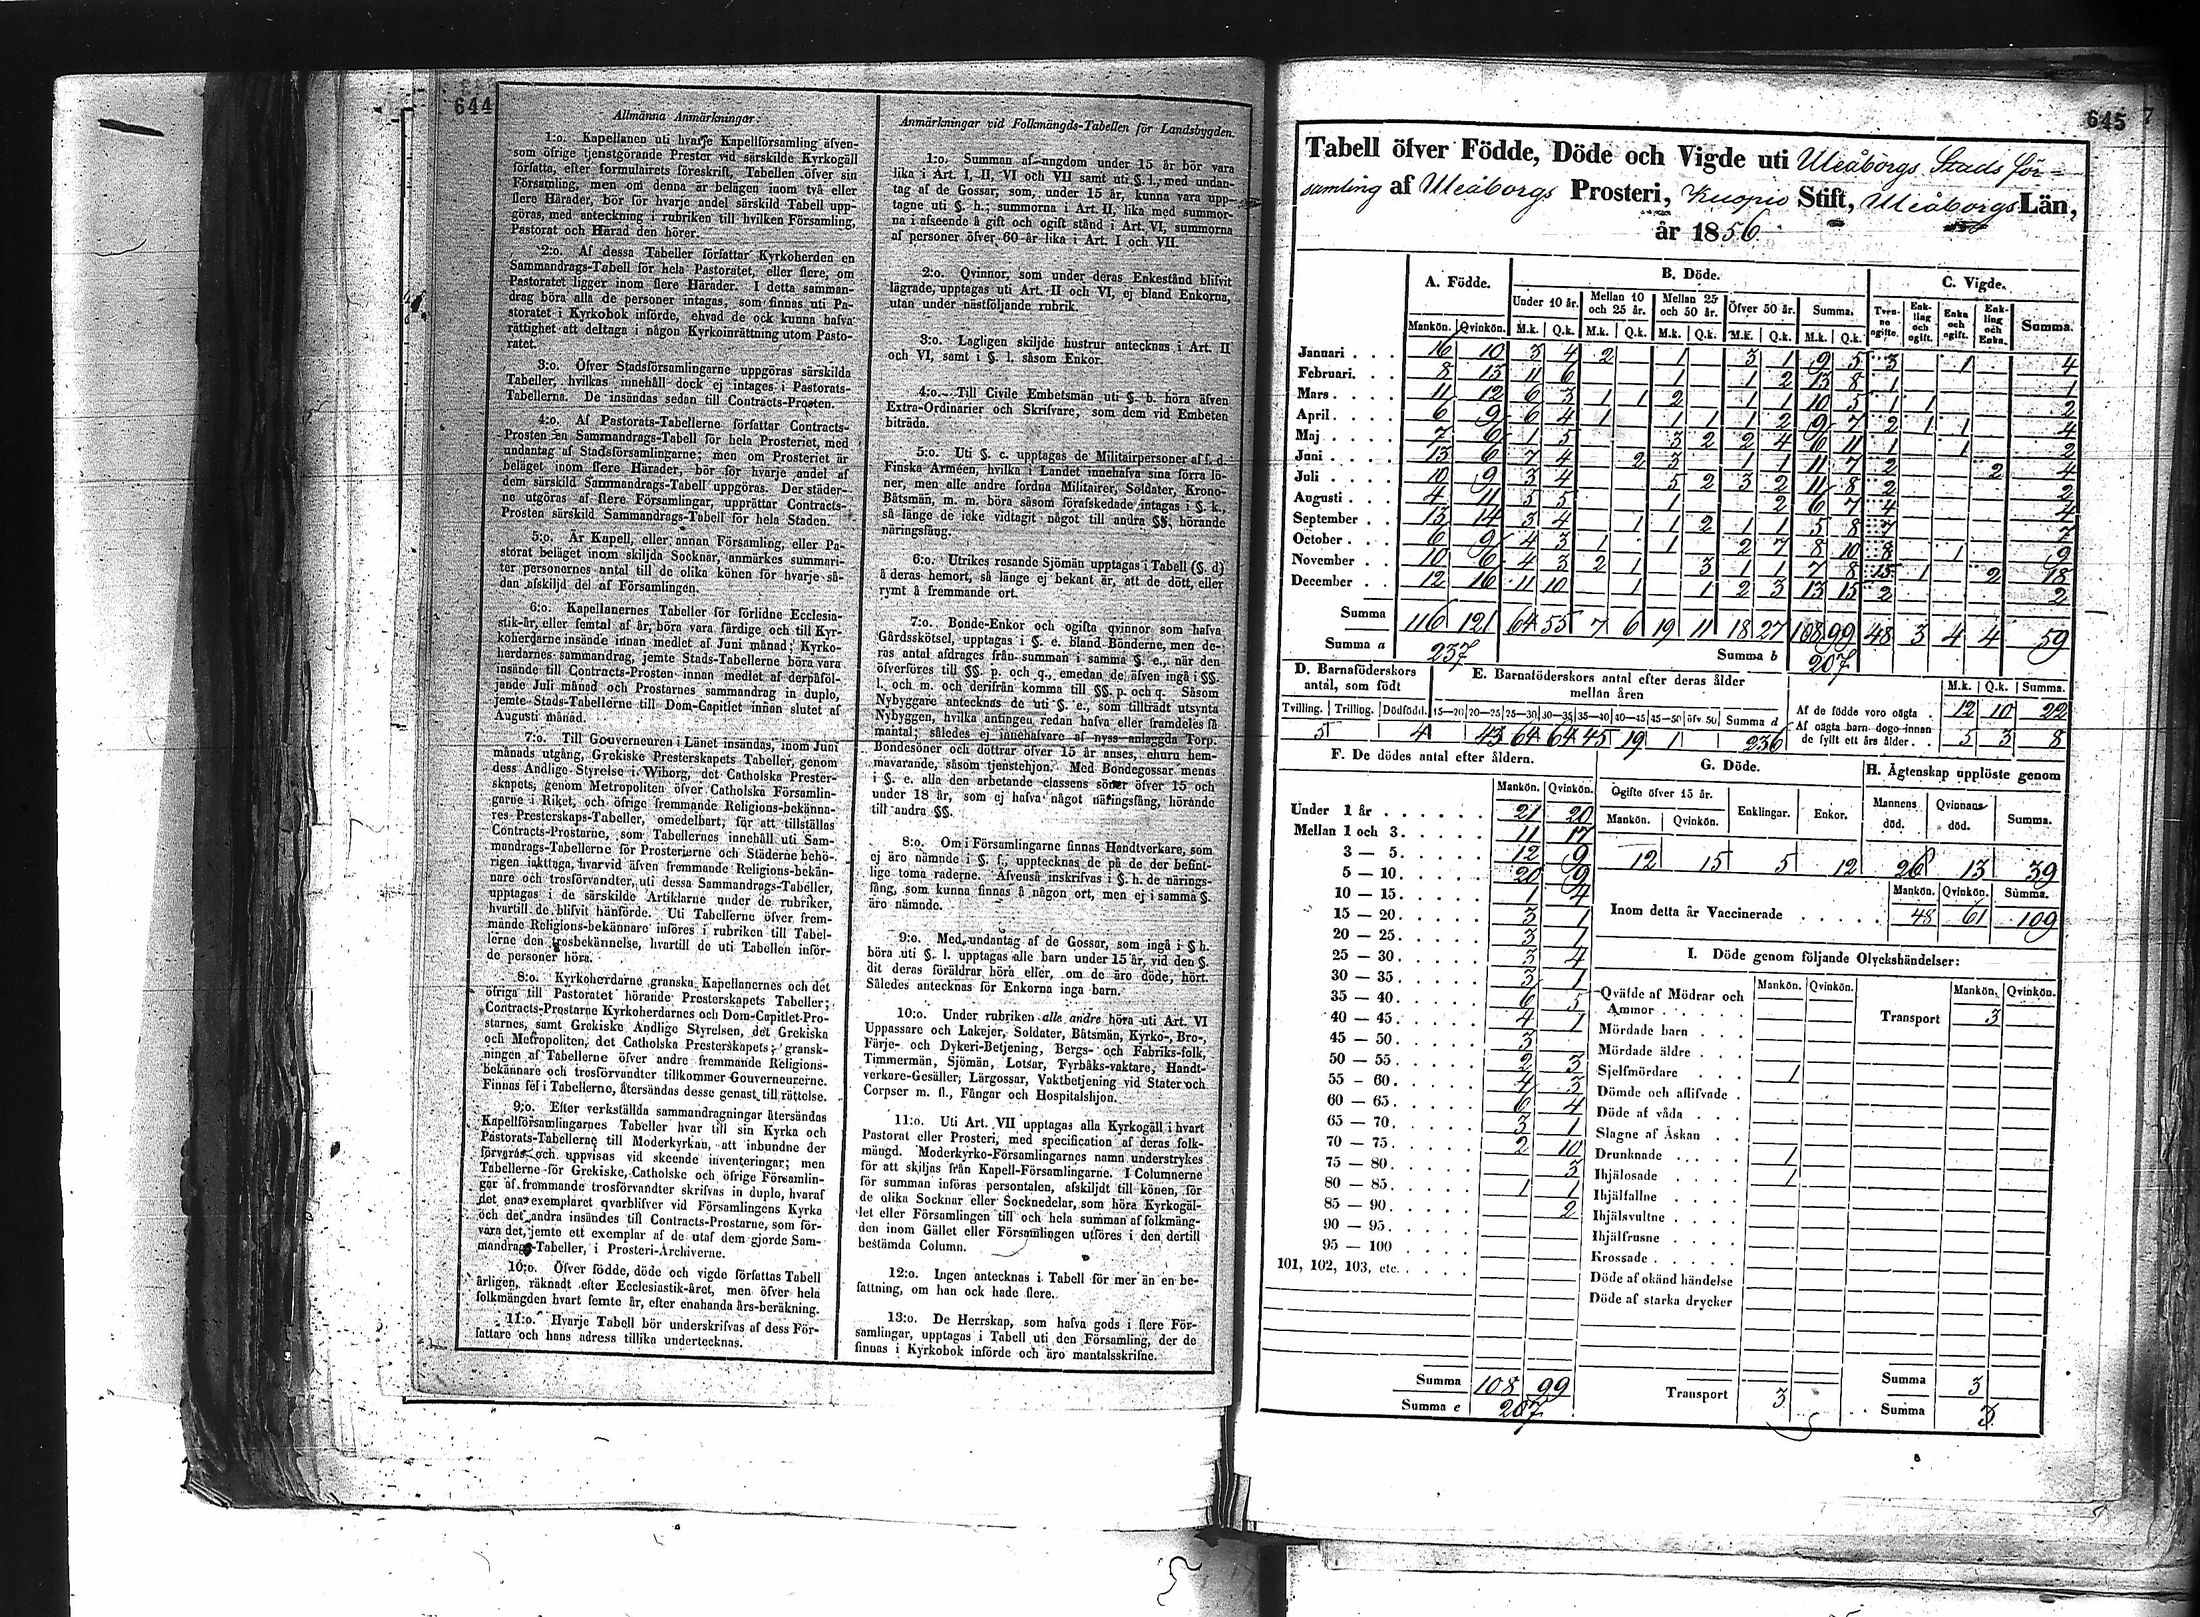 644
Allmänna Anmärkningar:
1:o. Kapellanen uti hvarje Kapellförsamling äfven-
som öfrige tjenstgörande Prester vid särskilde Kyrkogäll
författa, efter formulairets föreskrift, Tabellen öfver sin
Församling, men om denna är belägen inom två eller
flere Härader, bör för hvarje andel särskild Tabell upp-
göras, med anteckning i rubriken till hvilken Församling,
Pastorat och Härad den hörer.
2:o. Af dessa Tabeller författar Kyrkoherden en
Sammandrags-Tabell för hela Pastoratet, eller flere, om
Pastoratet ligger inom flere Härader. I detta samman-
drag böra alla de personer intagas, som finnas uti Pa-
storatet i Kyrkobok införde, ehvad de ock kunna hafva
rättighet att deltaga i någon Kyrkoinrättning utom Pasto-
ratet.
3:o. Öfver Stadsförsamlingarne uppgöras särskilda
Tabeller, hvilkas innehåll dock ej intages i Pastorats-
Tabellerna. De insändas sedan till Contracts-Prosten.
4:o. Af Pastorats-Tabellerne författar Contracts-
Prosten en Sammandrags-Tabell för hela Prosteriet, med
undantag af Stadsförsamlingarne; men om Prosteriet är
beläget inom flere Härader, bör för hvarje andel af
dem särskild Sammandrags-Tabell uppgöras. Der städer-
ne utgöras af flere Församlingar, upprättar Contracts-
Prosten särskild Sammandrags-Tabell för hela Staden.
5:o. Är Kapell, eller annan Församling, eller Pa-
storat beläget inom skiljda Socknar, anmärkes summari-
ter personernes antal till de olika könen för hvarje så-
dan afskiljd del af Församlingen.
6:o. Kapellanernes Tabeller för förlidne Ecclesia-
stik-år, eller femtal af år, böra vara färdige och till Kyr-
koherdarne insände innan medlet af Juni månad; Kyrko-
herdarnes sammandrag, jemte Stads-Tabellerne böra vara
insände till Contracts-Prosten innan medlet af derpåföl-
jande Juli månad och Prostarnes sammandrag in duplo,
jemte Stads-Tabellerne till Dom-Capitlet innan slutet af
Augusti månad.
7:o. Till Gouverneuren i Länet insändas, inom Juni
månads utgång, Grekiske Presterskapets Tabeller, genom
dess Andlige Styrelse i Wiborg, det Catholska Prester-
skapets, genom Metropoliten öfver Catholska Församlin-
garne i Riket, och öfrige fremmande Religions-bekänna-
res Presterskaps-Tabeller, omedelbart, för att tillställas
Contracts-Prostarne, som Tabellernes innehåll uti Sam-
mandrags-Tabellerne för Prosterierne och Städerne behö-
rigen iakttaga, hvarvid äfven fremmande Religions-bekän-
nare och trosförvandter, uti dessa Sammandrags-Tabeller,
upptages i de särskilde Artiklarne under de rubriker,
hvartill de blifvit hänförde. Uti Tabellerne öfver frem-
mande Religions-bekännare införes i rubriken till Tabel-
lerne den trosbekännelse, hvartill de uti Tabellen inför-
de personer höra.
8:o. Kyrkoherdarne granska Kapellanernes och det
öfriga till Pastoratet hörande Presterskapets Tabeller;
Contracts-Prostarne Kyrkoherdarnes och Dom-Capitlet Pro-
starnes, samt Grekiske Andlige Styrelsen, det Grekiska
och Metropoliten, det Catholska Presterskapets; gransk-
ningen af Tabellerne öfver andre fremmande Religions-
bekännare och trosförvandter tillkommer Gouverneurerne.
Finnas fel i Tabellerne, återsändas desse genast till rättelse.
9:o. Efter verkställda sammandragningar återsändas
Kapellförsamlingarnes Tabeller hvar till sin Kyrka och
Pastorats-Tabellerne till Moderkyrkan, att inbundne der
förvaras och uppvisas vid skeende inventeringar; men
Tabellerne för Grekiske, Catholske och öfrige Församlin-
gar af fremmande trosförvandter skrifvas in duplo, hvaraf
det ena exemplaret qvarblifver vid Församlingens Kyrka
och det andra insändes till Contracts-Prostarne, som för-
vara det, jemte ett exemplar af de utaf dem gjorde Sam-
mandrags-Tabeller, i Prosteri-Archiverne.
10:o. Öfver födde, döde och vigde författas Tabell
årligen, räknadt efter Ecclesiastik-året, men öfver hela
folkmängden hvart femte år, efter enahanda års-beräkning.
11:o. Hvarje Tabell bör underskrifvas af dess För-
fattare och hans adress tillika undertecknas.
Anmärkningar vid Folkmängds-Tabellen för Landsbygden.
1:o. Summan af ungdom under 15 år bör vara
lika i Art. I, II, VI och VII samt uti §. l., med undan-
tag af de Gossar, som, under 15 år, kunna vara upp-
tagne uti §. h.; summorna i Art. II, lika med summor-
na i afseende å gift och ogift stånd i Art. VI, summorna
af personer öfver 60 år lika i Art. I och VII.
2:o. Qvinnor, som under deras Enkestånd blifvit
lägrade, upptagas uti Art. II och VI, ej bland Enkorna,
utan under nästföljande rubrik.
3:o. Lagligen skiljde hustrur antecknas i Art. II
och VI, samt i §. l. såsom Enkor.
4:o. Till Civile Embetsmän uti §. b. höra äfven
Extra-Ordinarier och Skrifvare, som dem vid Embeten
biträda.
5:o. Uti §. c. upptagas de Militairpersoner af f. d.
Finska Arméen, hvilka i Landet innehafva sina förra lö-
ner, men alle andre fordna Militairer, Soldater, Krono-
Båtsmän, m. m. böra såsom förafskedade intagas i §. k.,
så länge de icke vidtagit något till andra §§. hörande
näringsfång.
6:o. Utrikes resande Sjömän upptagas i Tabell (§. d)
å deras hemort, så länge ej bekant är, att de dött, eller
rymt å fremmande ort.
7:o. Bonde-Enkor och ogifta qvinnor som hafva
Gårdsskötsel, upptagas i §. e. bland Bönderne, men de-
ras antal afdrages från summan i samma §. e., när den
öfverföres till §§. p. och q., emedan de äfven ingå i §§.
l. och m. och derifrån komma till §§. p. och q. Såsom
Nybyggare antecknas de uti §. e., som tillträdt utsynta
Nybyggen, hvilka antingen redan hafva eller framdeles få
mantal; således ej innehafvare af nyss anlaggda Torp.
Bondesöner och döttrar öfver 15 år anses, ehuru hem-
mavarande, såsom tjenstehjon. Med Bondegossar menas
i §. e. alla den arbetande classens söner öfver 15 och
under 18 år, som ej hafva något näringsfång, hörande
till andra §§.
8:o. Om i Församlingarne finnas Handtverkare, som
ej äro nämnde i §. f., upptecknas de på de der befint-
lige toma raderne. Äfvenså inskrifvas i §. h. de närings-
fång, som kunna finnas å någon ort, men ej i samma §.
äro nämnde.
9:o. Med undantag af de Gossar, som ingå i § h.
böra uti §. l. upptagas alle barn under 15 år, vid den §.
dit deras föräldrar höra eller, om de äro döde, hört.
Således antecknas för Enkorna inga barn.
10:o. Under rubriken alle andre höra uti Art. VI
Uppassare och Lakejer, Soldater, Båtsmän, Kyrko-, Bro-,
Färje- och Dykeri-Betjening, Bergs- och Fabriks-folk,
Timmermän, Sjömän, Lotsar, Fyrbåks-vaktare, Handt-
verkare-Gesäller, Lärgossar, Vaktbetjening vid Stater och
Corpser m. fl., Fångar och Hospitalshjon.
11:o. Uti Art. VII upptagas alla Kyrkogäll i hvart
Pastorat eller Prosteri, med specification af deras folk-
mängd. Moderkyrko-Församlingarnes namn understrykes
för att skiljas från Kapell-Församlingarne. I Columnerne
för summan införas persontalen, afskiljdt till könen, för
de olika Socknar eller Socknedelar, som höra Kyrkogäl-
let eller Församlingen till och hela summan af folkmäng-
den inom Gället eller Församlingen utföres i den dertill
bestämda Column.
12:o. Ingen antecknas i Tabell för mer än en be-
fattning, om han ock hade flere.
13:o. De Herrskap, som hafva gods i flere För-
samlingar, upptagas i Tabell uti den Församling, der de
finnas i Kyrkobok införde och äro mantalsskrifne.
645 7
Tabell öfver Födde, Döde och Vigde uti Uleåborgs Stads för=
samling af Uleåborgs Prosteri, Kuopio Stift, Uleåborgs Län,
år 1856.
A. Födde. B. Döde. C. Vigde.
Under 10 år. Mellan 10 och 25 år. Mellan 25 och 50 år. Öfver 50 år. Summa. Tvenne ogifte. Enkling och ogift. Enka och ogift. Enkling och Enka. Summa.
Mankön. Qvinkön. M.k. Q.k. M.k. Q.k. M.k. Q.k. M.k. Q.k. M.k. Q.k.
Januari . . . 16 10 3 4 2 1 3 1 9 5 3 1 4
Februari. . . 8 13 11 6 1 1 2 13 8 1 1
Mars . . . . 11 12 6 3 1 1 2 1 1 10 5 1 1 2
April . . . . 6 9 6 4 1 1 1 1 2 9 7 2 1 1 4
Maj . . . . . 7 6 1 5 3 2 2 4 6 11 1 1 2
Juni . . . . 13 6 7 4 2 3 1 1 11 7 2 2 4
Juli . . . . . 10 9 3 4 5 2 3 2 11 8 2 2
Augusti . . . 4 11 5 5 1 2 6 7 4 4
September . . 13 14 3 4 1 1 2 1 1 5 8 7 7
October . . . 6 9 4 3 1 1 2 7 8 10 8 1 9
November . . 10 6 4 3 2 1 3 1 1 7 8 15 1 2 18
December . . 12 16 11 10 1 1 2 3 13 15 2 2
Summa 116 121 64 55 7 6 19 11 18 27 108 99 48 3 4 4 59
Summa a 237 Summa b 207
D. Barnaföderskors antal, som födt
E. Barnaföderskors antal efter deras ålder mellan åren
M.k. Q.k. Summa.
Tvilling. Trilling. Dödfödd. 15—20 20—25 25—30 30—35 35—40 40—45 45—50 öfv. 50 Summa d
5 4 43 64 64 45 19 1 236
Af de födde voro oägta . 12 10 22
Af oägta barn dogo innan de fyllt ett års ålder. . 5 3 8
F. De dödes antal efter åldern.
Mankön. Qvinkön.
Under 1 år . . . . . . 21 20
Mellan 1 och 3. . . . . 11 17
3 — 5. . . . . 12 9
5 — 10. . . . . 20 9
10 — 15 . . . . . 1 4
15 — 20. . . . . 3 1
20 — 25. . . . . 3 1
25 — 30. . . . . 3 4
30 — 35. . . . . 3 1
35 — 40. . . . . 6 5
40 — 45. . . . . 4 1
45 — 50. . . . . 3
50 — 55. . . . . 2 3
55 — 60. . . . . 4 3
60 — 65. . . . . 6 4
65 — 70. . . . . 3 1
70 — 75. . . . . 2 10
75 — 80. . . . . 3
80 — 85. . . . . 1 1
85 — 90. . . . . 2
90 — 95. . . . .
95 — 100 . . . .
101, 102, 103, etc. . . . .
Summa 108 99
Summa e 207
G. Döde.
Ogifte öfver 15 år. Enklingar. Enkor.
Mankön. Qvinkön.
12 15 5 12
H. Ägtenskap upplöste genom
Mannens död. Qvinnans död. Summa.
26 13 39
Mankön. Qvinkön. Summa.
Inom detta år Vaccinerade . . . . . 48 61 109
I. Döde genom följande Olyckshändelser:
Mankön. Qvinkön. Mankön. Qvinkön.
Qväfde af Mödrar och
Ammor . . . . . Transport 3
Mördade barn . . .
Mördade äldre . . .
Sjelfmördare . . . . 1
Dömde och aflifvade .
Döde af våda . . .
Slagne af Åskan . .
Drunknade . . . . . 1
Ihjälosade . . . . 1
Ihjälfallne . . . .
Ihjälsvultne . . . .
Ihjälfrusne . . . .
Krossade . . . . .
Döde af okänd händelse
Döde af starka drycker
Transport 3 Summa 3
Summa 3